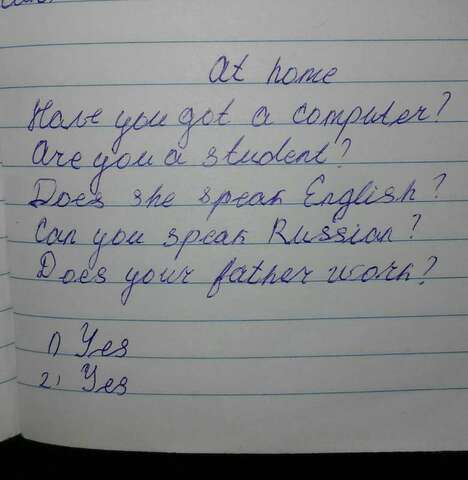 At home
Have you got a computer?
Are you a student?
Does she speak English?
Can you speak Russian?
Does your father work?
1) Yes
2) Yes